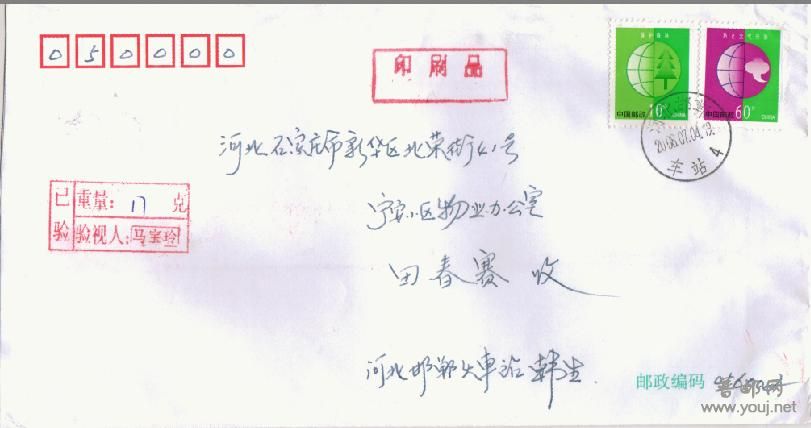 050000
印刷品
保护森林
防止大气污染
中国邮政 10分 CHINA
中国邮政 60分 CHINA
2006.07.04.18
车站 4
河北石家庄市新华区北荣街41号
宁安小区物业办公室
田春赛 收
已验
重量: 17 克
验视人: 马宝玲
河北邯郸火车站 韩生
邮政编码
普邮网
www.youj.net